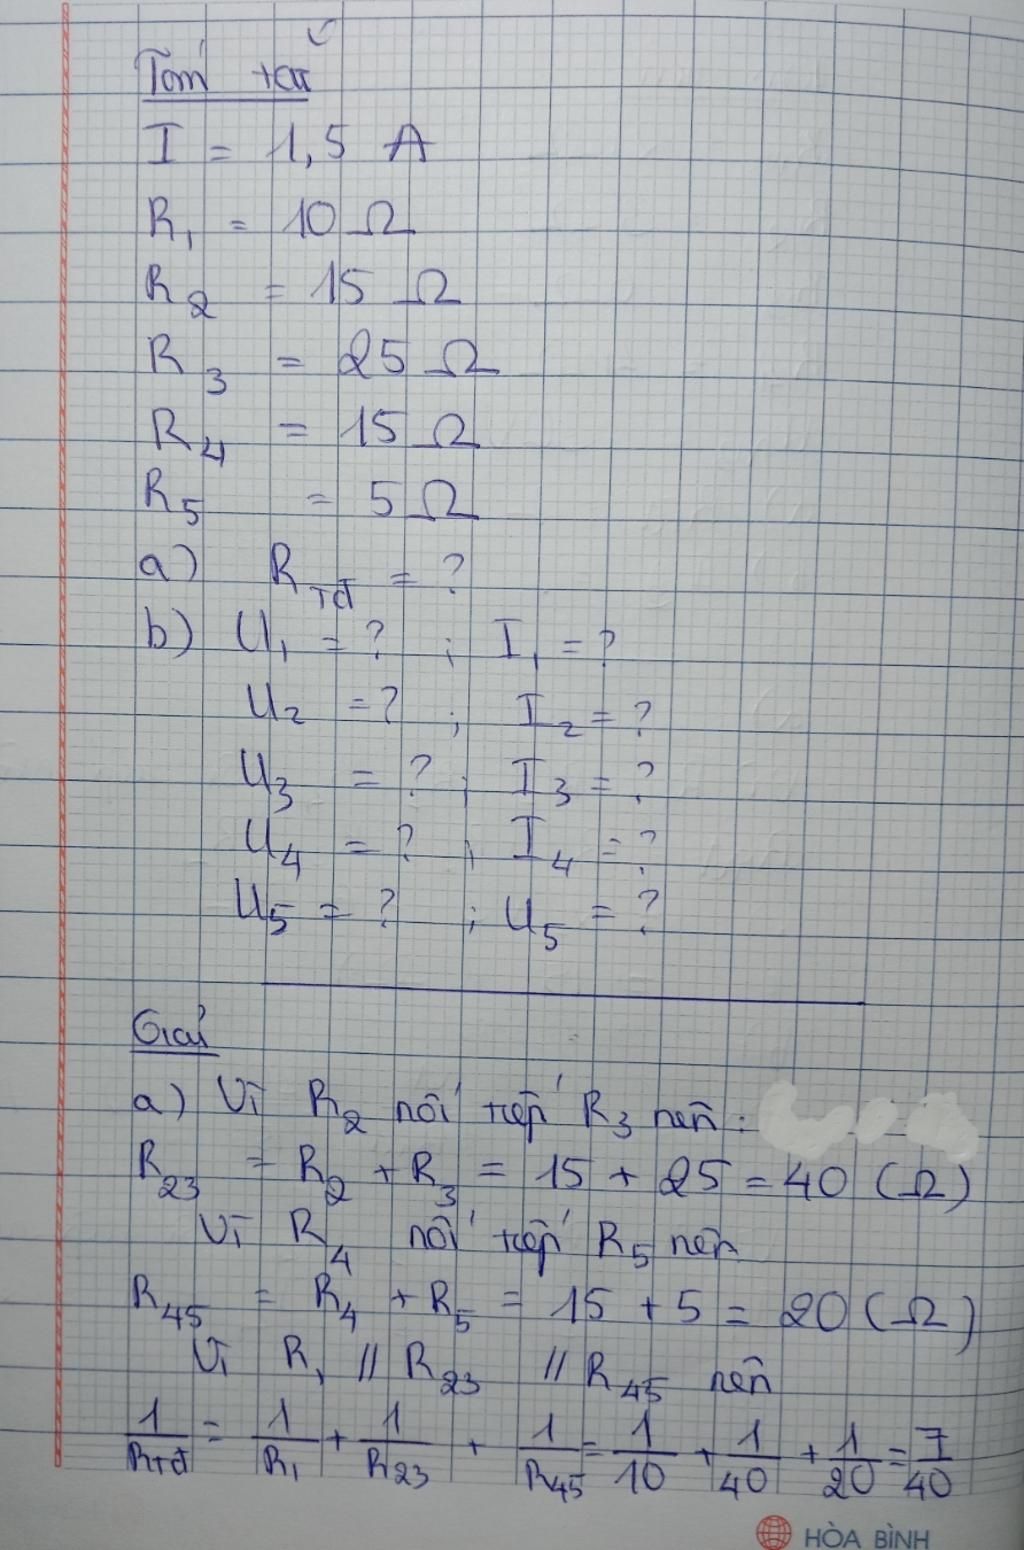 Tóm tắt
I = 1,5 A
R₁ = 10 Ω
R₂ = 15 Ω
R₃ = 25 Ω
R₄ = 15 Ω
R₅ = 5 Ω
a) R_TĐ = ?
b) U₁ = ? ; I₁ = ?
U₂ = ? ; I₂ = ?
U₃ = ? ; I₃ = ?
U₄ = ? ; I₄ = ?
U₅ = ? ; U₅ = ?
Giải
a) Vì R₂ nối tiếp R₃ nên :
R₂₃ = R₂ + R₃ = 15 + 25 = 40 (Ω)
Vì R₄ nối tiếp R₅ nên
R₄₅ = R₄ + R₅ = 15 + 5 = 20 (Ω)
Vì R₁ // R₂₃ // R₄₅ nên
1/R_TĐ = 1/R₁ + 1/R₂₃ + 1/R₄₅ = 1/10 + 1/40 + 1/20 = 7/40
HÒA BÌNH